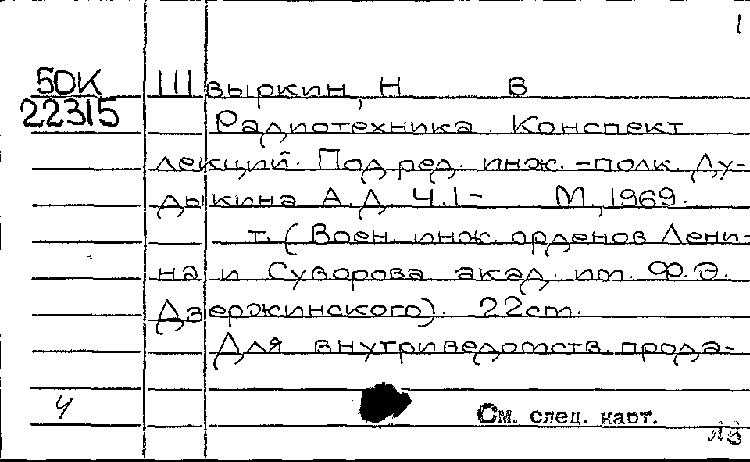 1
БОК Швыркин, Н В
22315 Радиотехника. Конспект
лекций. Под ред. инж.-полк. Ду-
дыкина А.Д. Ч.1- М., 1969.
т. (Воен. инж. орденов Лени-
на и Суворова акад. им. Ф.Э.
Дзержинского). 22 см.
Для внутриведомств. прода-
4 См. спец. карт.